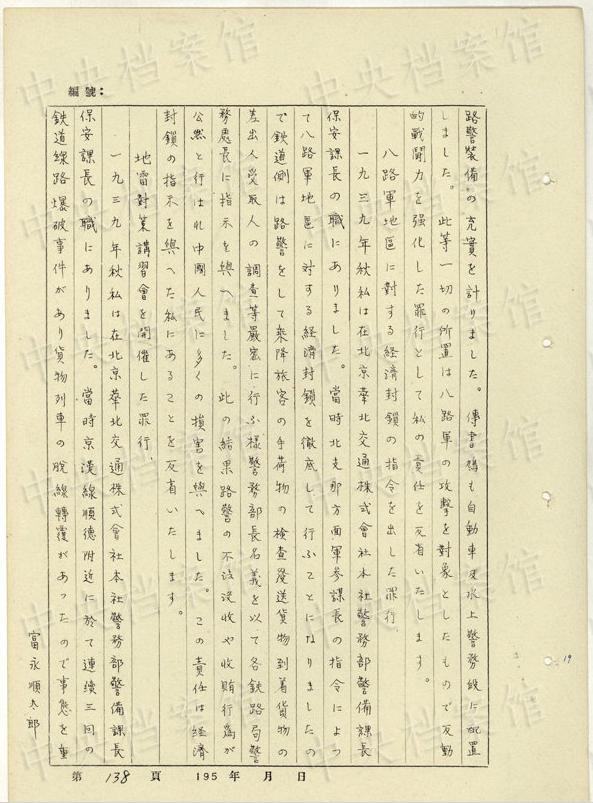 中央档案馆
編號：
路警装備の充實を計りました。傳書鳩も自動車及水上警務段に配置
しました。此等一切の所置は八路軍の攻撃を対象としたもので反動
的戰闘力を強化した罪行として私の責任を反省いたします。
八路軍地區に対する経済封鎖の指令を出した罪行、
一九三九年秋私は在北京華北交通株式會社本社警務部警備課長
保安課長の職にありました。當時北支那方面軍参謀長の指令によっ
て八路軍地區に対する経済封鎖を徹底して行ふことになりましたの
で鉄道側は路警をして乗降旅客の手荷物の検査發送貨物到着貨物の
差出人受取人の調査等嚴密に行ふ様警務部長名義を以て各鉄路局警
務處長に指示を與へました。此の結果路警の不法没收や收賄行爲が
公然と行はれ中國人民に多くの損害を與へました。この責任は経済
封鎖の指示を與へた私にあることを反省いたします。
地雷対策講習會を開催した罪行、
一九三九年秋私は在北京華北交通株式會社本社警務部警備課長
保安課長の職にありました。當時京漢線順德附近に於て連續三回の
鉄道線路爆破事件があり貨物列車の脱線轉覆があったので事態を重
富永順太郎
第 138 頁 195 年 月 日
19